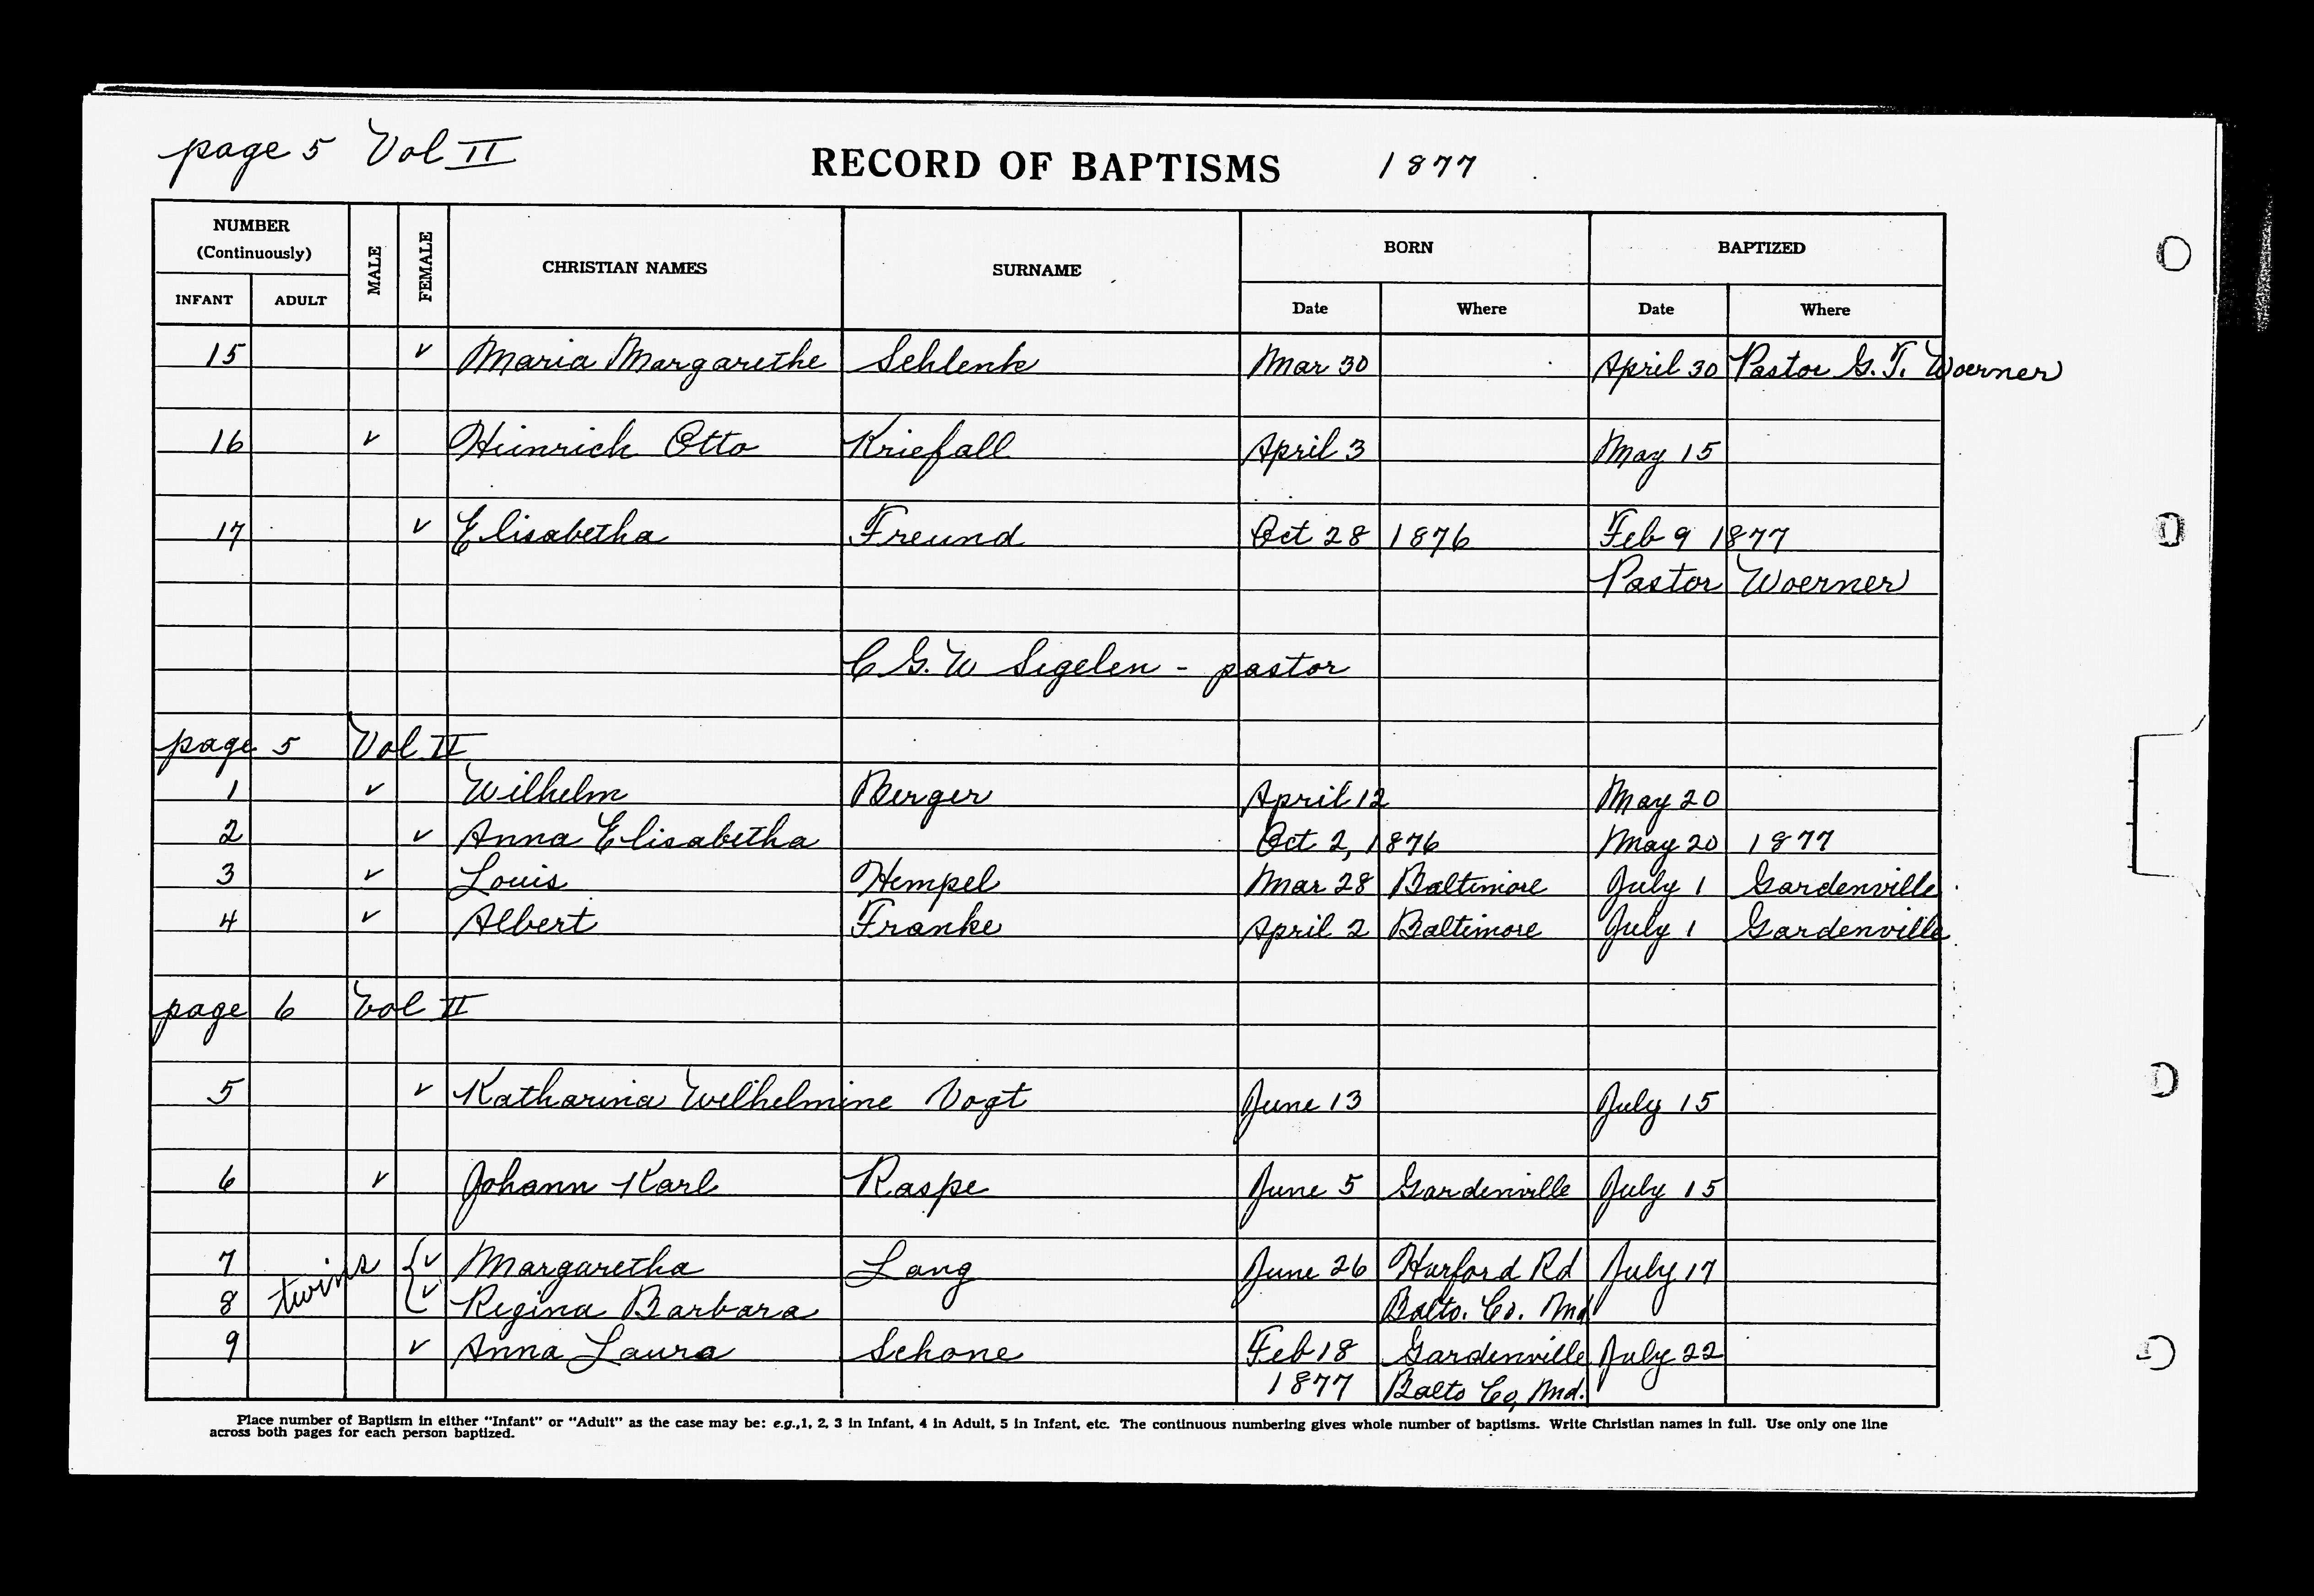 page 5 Vol II
RECORD OF BAPTISMS 1877
NUMBER (Continuously) MALE FEMALE CHRISTIAN NAMES SURNAME BORN BAPTIZED
INFANT ADULT Date Where Date Where
15 v Maria Margarethe Schlenk Mar 30 April 30 Pastor G. T. Woerner
16 v Heinrich Otto Kriefall April 3 May 15
17 v Elisabetha Freund Oct 28 1876 Feb 9 1877
Pastor Woerner
C G. W Sigelen - pastor
page 5 Vol II
1 v Wilhelm Berger April 12 May 20
2 v Anna Elisabetha Oct 2, 1876 May 20 1877
3 v Louis Hempel Mar 28 Baltimore July 1 Gardenville
4 v Albert Franke April 2 Baltimore July 1 Gardenville
page 6 Vol II
5 v Katharina Wilhelmine Vogt June 13 July 15
6 v Johann Karl Raspe June 5 Gardenville July 15
7 twins { v Margaretha Lang June 26 Harford Rd July 17
8 v Regina Barbara Balto. Co. Md
9 v Anna Laura Schone Feb 18 Gardenville July 22
1877 Balto Co, Md.
Place number of Baptism in either "Infant" or "Adult" as the case may be: e.g., 1, 2, 3 in Infant, 4 in Adult, 5 in Infant, etc. The continuous numbering gives whole number of baptisms. Write Christian names in full. Use only one line
across both pages for each person baptized.